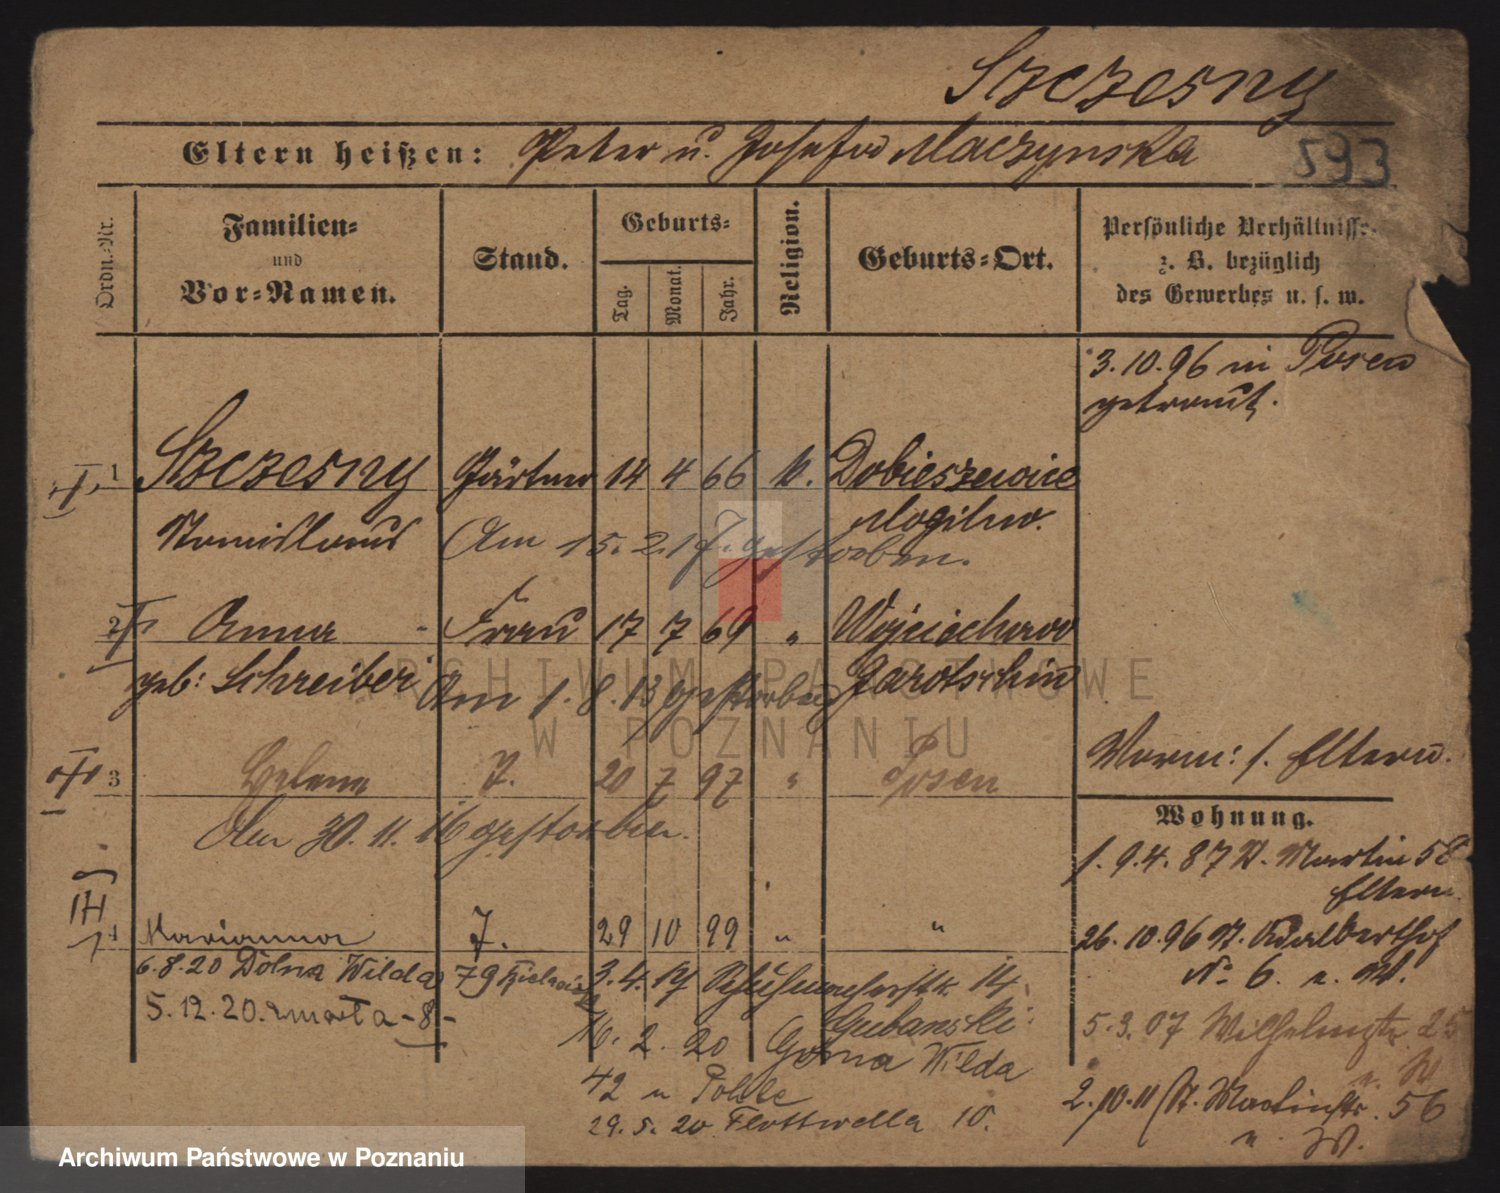 Szczesny
Eltern heißen: Peter u. Josefa Maczynska
593
Ordn.-Nr.
Familien-
und
Vor-Namen.
Stand.
Geburts-
Tag.
Monat.
Jahr.
Religion.
Geburts-Ort.
Persönliche Verhältnisse
z. B. bezüglich
des Gewerbes u. s. w.
3.10.96 in Posen
getraut.
1 Szczesny Gärtner 14 4 66 k. Dobieszewice
Stanislaus Mogilno.
Am 15.2.17. gestorben.
2 Anna Frau 17 7 69 " Wojciechowo
geb: Schreiber Jarotschin
Am 1.8.13 gestorben
3 Helene T. 20 7 97 " Posen
Am 30.11.16 gestorben.
Vorm: s. Eltern.
Wohnung.
1.9.4.87 St. Martin 58
Eltern
26.10.96 St. Adalberthof
No 6. n. W.
5.3.07 Wilhelmstr. 25
n. W
2.10.11 St. Martinstr. 56
n. W.
4 Marianna T. 29 10 99 " "
6.8.20 Dolna Wilda 79
5.12.20. zmarła -8-
3.4.19 14
Gubanski
16.2.20 Górna Wilda
42 u Pohle
29.5.20 Flottwella 10.
ARCHIWUM PAŃSTWOWE
W POZNANIU
Archiwum Państwowe w Poznaniu